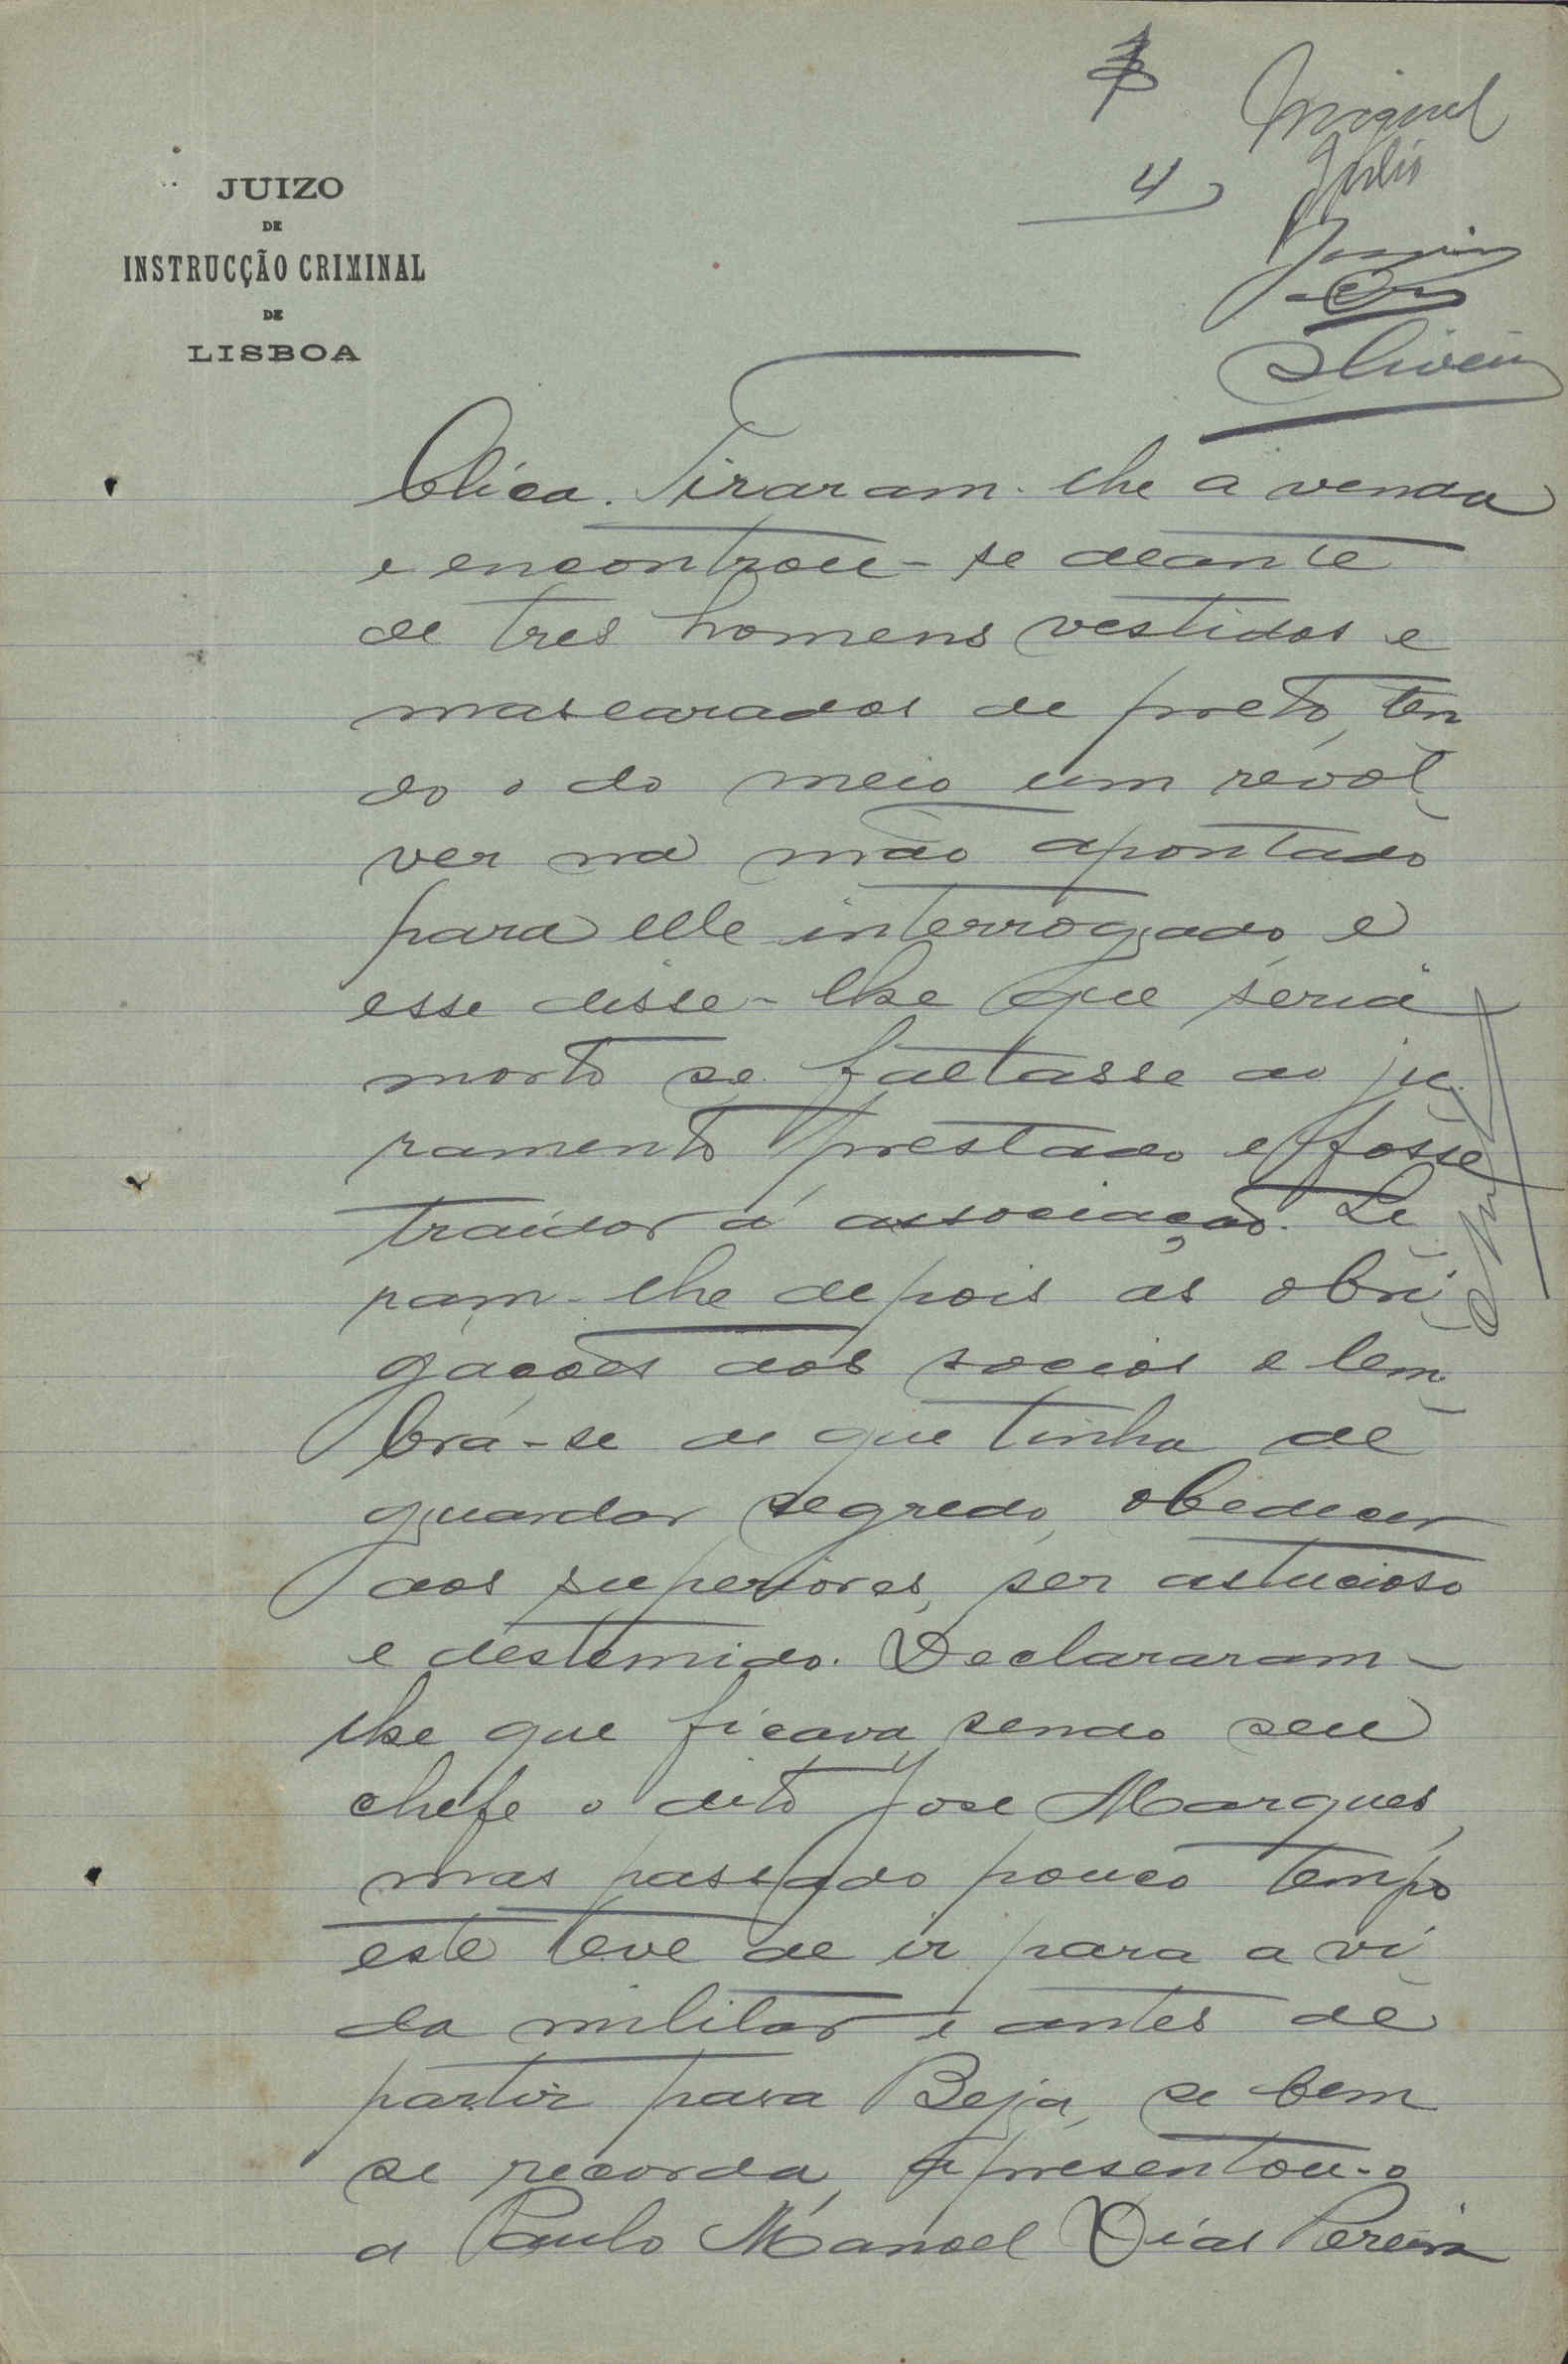 JUIZO
DE
INSTRUCÇÃO CRIMINAL
DE
LISBOA
4
Miguel
Julio
Oliveira
blica. Tiraram-lhe a venda
e encontrou-se deante
de tres homens vestidos e
mascarados de preto, ten
do o do meio um revol
ver na mão apontado
para elle interrogado, e
esse disse-lhe que seria
morto se faltasse ao ju
ramento prestado e fosse
traidor á associação. Le
ram-lhe depois as obri
gações dos socios e lem
bra-se de que tinha de
guardar segredo, obedecer
aos superiores, ser astucioso
e destemido. Declararam-
lhe que ficava sendo seu
chefe o dito José Marques,
mas passado pouco tempo
este teve de ir para a vi
da militar e antes de
partir para Beja, se bem
se recorda, apresentou-o
a Paulo Manoel Dias Pereira